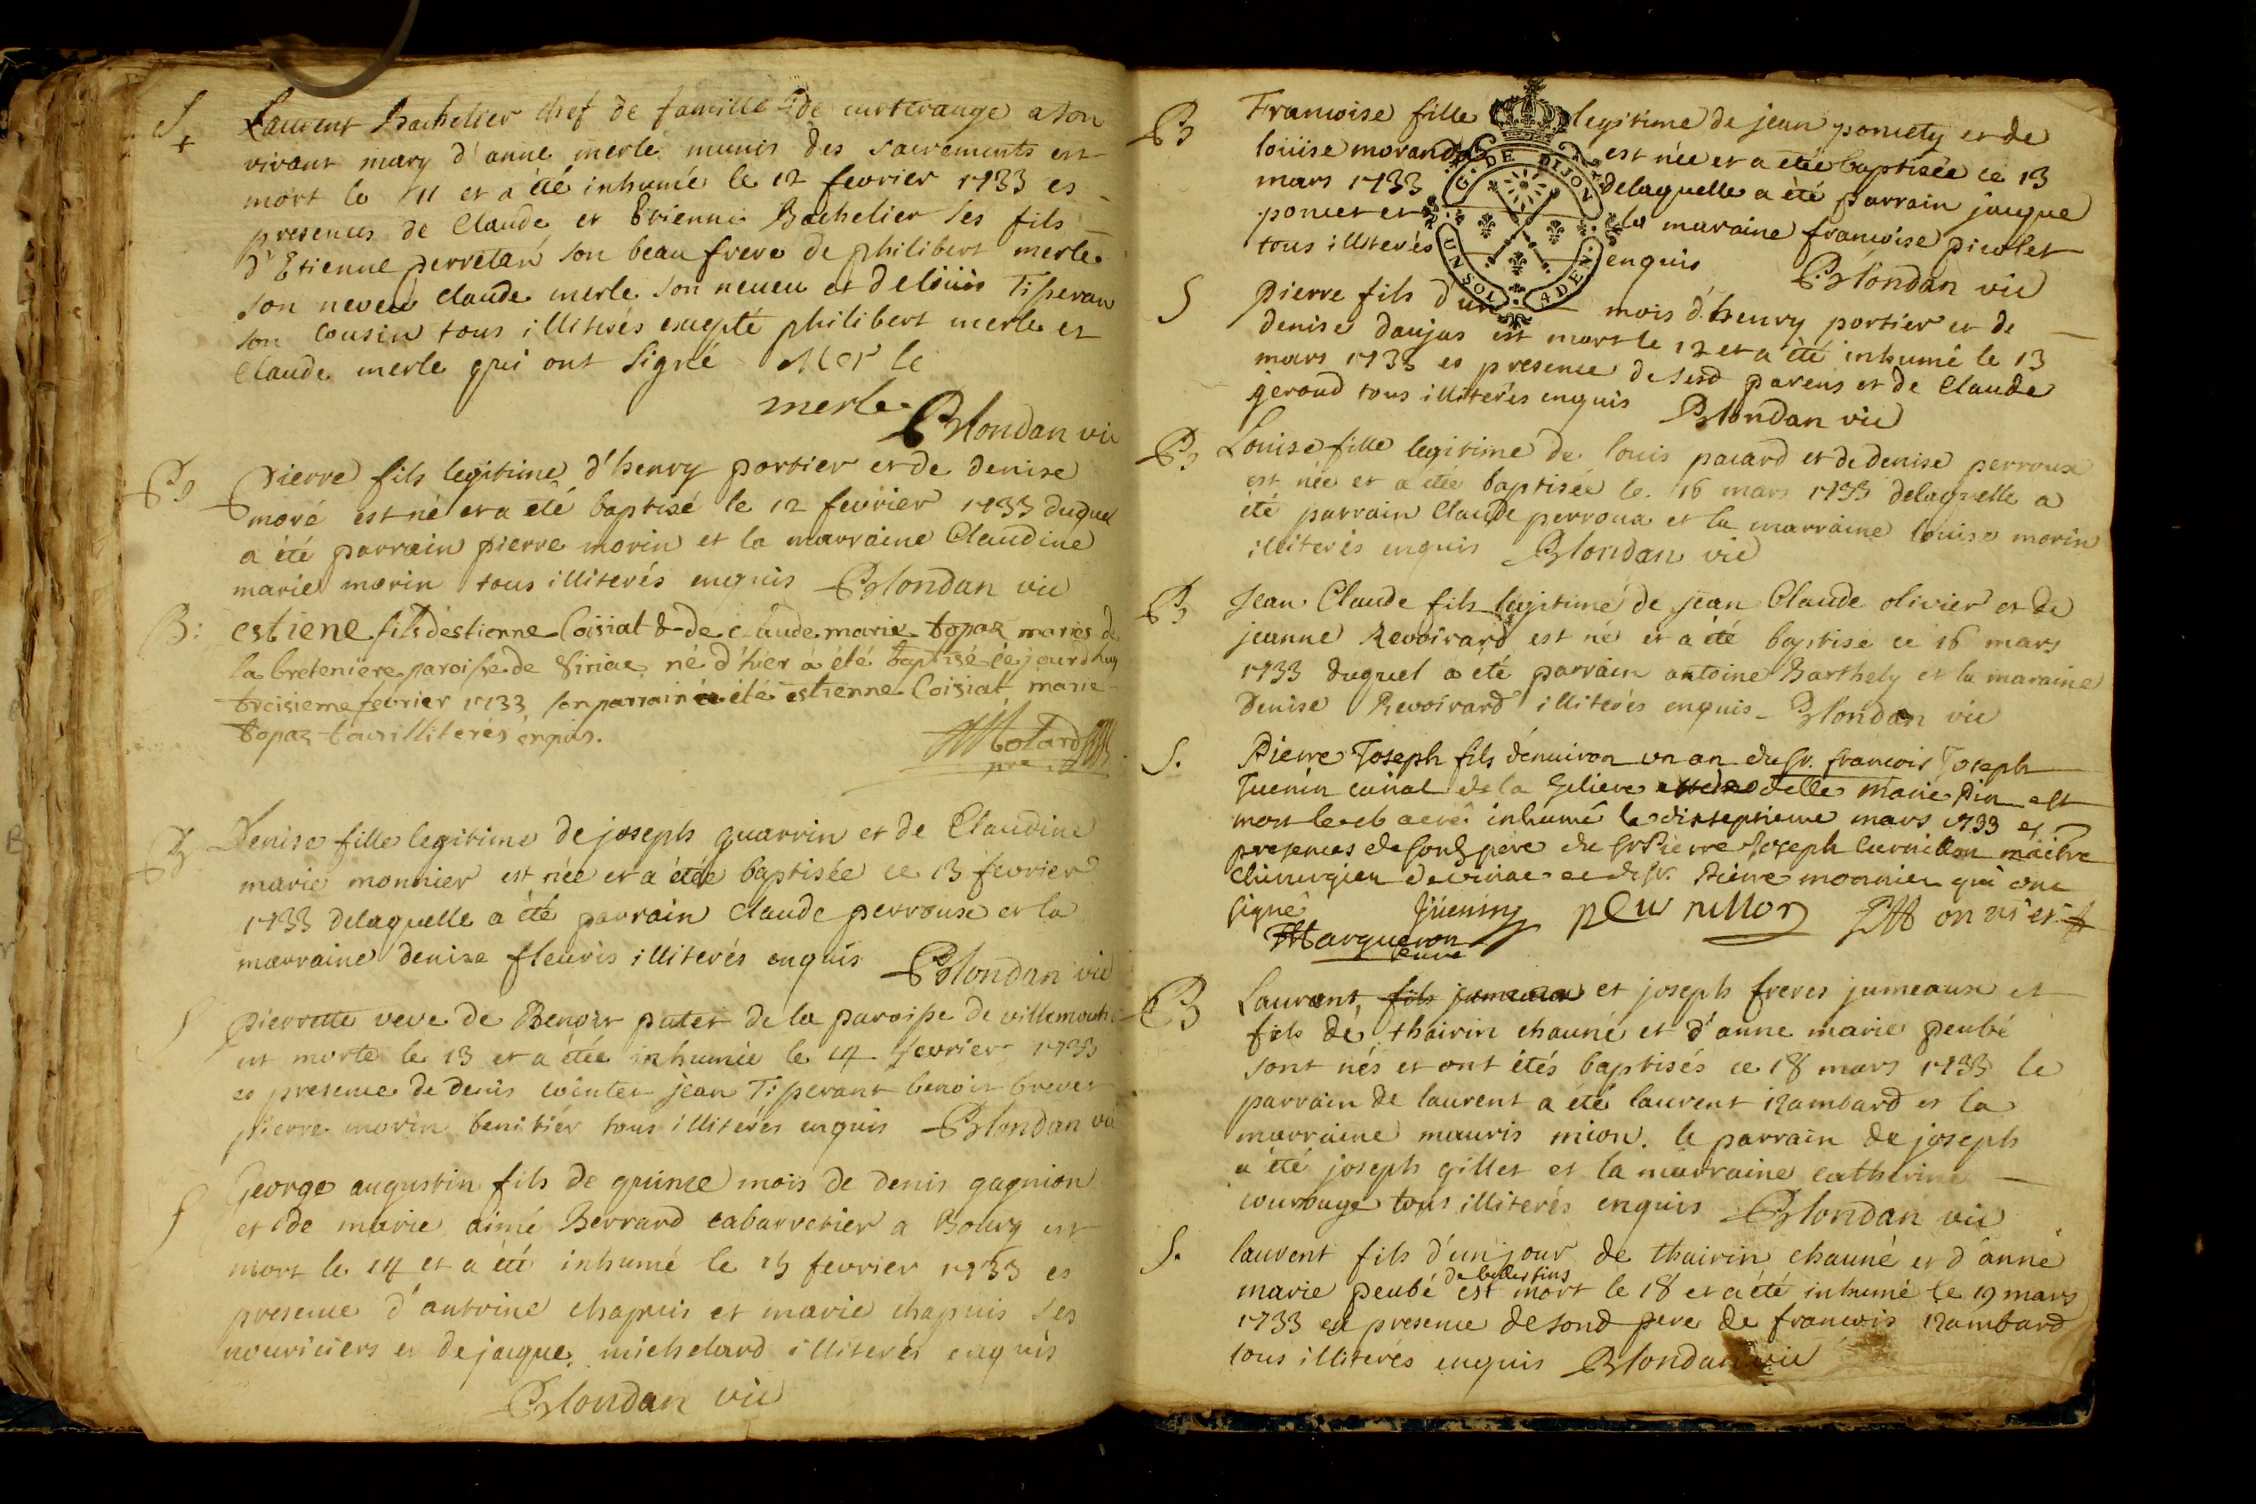 S
+
Laurent Bachelier chef de famille de curterange a son
vivant mary d'anne merle munis des sacrements est
mort le 11 et a été inhumé le 12 fevrier 1733 es
presences de Claude et Etienne Bachelier ses fils
d'Etienne perretan son beau frere de philibert merle
son neveu Claude merle son neveu et de loüis Tisseran
son Cousin tous illiterés excepté philibert merle et
Claude merle qui ont signé Merle
merle Blondan vic
B
Pierre fils legitime d'henry portier et de denise
moré est né et a eté baptisé le 12 fevrier 1733 duquel
a été parrain pierre morin et la marraine Claudine
marie morin tous illiterés enquis Blondan vic
B:
estiene fils destienne Coisiat & de claude marie topaz mariés de
la breteniere paroisse de Viriac né d'hier a été baptisé ce jourdhuy
troisieme fevrier 1733 son parrain a été estienne Coisiat marie
topaz tous illiterés enquis.
Motard
pre
B
Denise fille legitime de joseph guarrin et de Claudine
marie monnier est née et a étée baptisée ce 13 fevrier
1733 delaquelle a été parrain Claude perroux et la
marraine denise fleuris illiterés enquis Blondan vic
S
pierrette veve de Benoit putet de la paroisse de villemoute
est morte le 13 et a étée inhumée le 14 fevrier 1733
es presence de denis cointet jean Tisserant benoit brevet
pierre morin benitiér tous illiterés enquis Blondan vic
S
George augustin fils de quince mois de denis gagnion
et de marie aimé Berrard cabarretier a Bourg est
mort le 14 et a été inhumé le 15 fevrier 1733 es
presence d'antoine chapuis et marie chapuis ses
nouriciers et de jacque michelard illiterés enquis
Blondan vic
B
Francoise fille legitime de jean poncety et de
loüise morand est née et a étée baptisée ce 13
mars 1733 delaquelle a été parrain jacque
poncet et la maraine francoise picolet
tous illiterés enquis Blondan vic
G. DE DIJON
UN SOL 4 DEN.
S
pierre fils d'un mois d'henry portier et de
denise daujas est mort le 12 et a été inhumé le 13
mars 1733 es presence de sesd parens et de Claude
geroud tous illiterés enquis Blondan vic
B
Louise fille legitime de louis pacard et de denise perroux
est née et a étée baptisée le 16 mars 1733 delaquelle a
été parrain Claude perroux et la marraine louise morin
illiterés enquis Blondan vic
B
Jean Claude fils legitime de jean Claude olivier et de
jeanne Revoirard est né et a été baptise ce 16 mars
1733 duquel a été parrain antoine Barthely et la maraine
Denise Revoirard illiterés enquis Blondan vic
S.
Pierre Joseph fils d'enuiron un an du Sr. francois Joseph
Guenin de la Geliere delle Marie Pin est
mort le 16 a eté inhumé le dixseptieme mars 1733 es
presences de sond pere du Sr Pierre Joseph Curnillon maitre
Chirurgien de viriac et du Sr. Pierre monnier qui ont
signé Guenin p Curnillon PM onnier
Marqueron
Curé
B
Laurent fils jumeaux et joseph freres jumeaux et
fils de thairin chauné et d'anne marie peubé
sont nés et ont étés baptisés ce 18 mars 1733 le
parrain de laurent a été laurent Rambard et la
marraine mauris mion. le parrain de joseph
a été joseph gillet et la marraine catherine
courouge tous illiterés enquis Blondan vic
S.
laurent fils d'un jour de thairin chauné et d'anne
marie peubé est mort le 18 et a été inhumé le 19 mars
1733 en presence de sond pere de francois Rambard
tous illiterés enquis Blondan vic